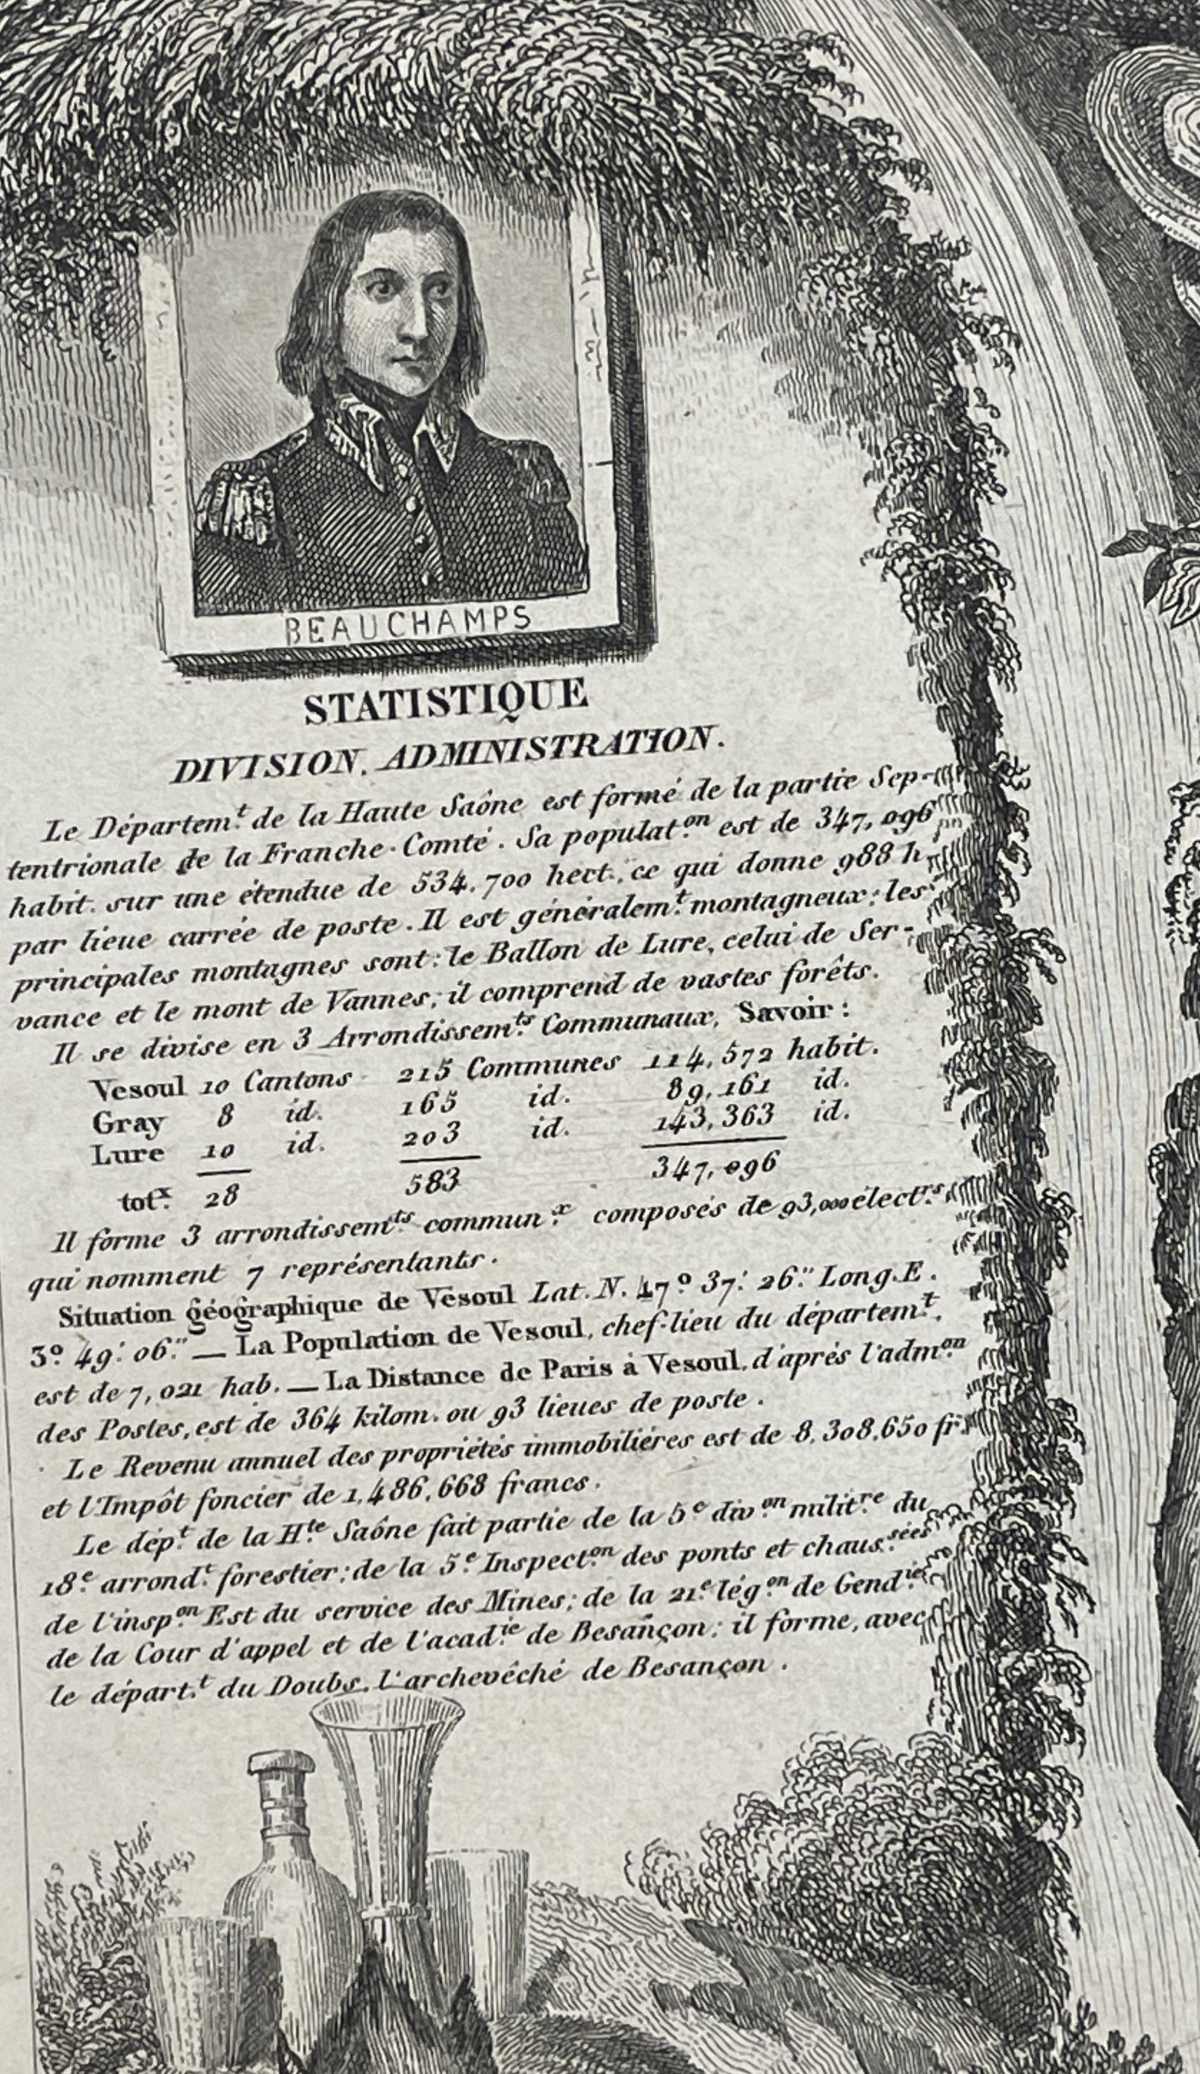 BEAUCHAMPS
STATISTIQUE
DIVISION. ADMINISTRATION.
Le Départem.t de la Haute Saône est formé de la partie Sep-
tentrionale de la Franche-Comté. Sa populat.on est de 347,096
habit. sur une étendue de 534,700 hect., ce qui donne 988 h.
par lieue carrée de poste. Il est généralem.t montagneux: les
principales montagnes sont: le Ballon de Lure, celui de Ser-
vance et le mont de Vannes; il comprend de vastes forêts.
Il se divise en 3 Arrondissem.ts Communaux, Savoir:
Vesoul 10 Cantons 215 Communes 114,572 habit.
Gray 8 id. 165 id. 89,161 id.
Lure 10 id. 203 id. 143,363 id.
tot.x 28 583 347,096
Il forme 3 arrondissem.ts commun.x composés de 93,000 élect.rs
qui nomment 7 représentants.
Situation géographique de Vesoul Lat. N. 47° 37' 26" Long. E.
3° 49' 06" — La Population de Vesoul, chef-lieu du départem.t,
est de 7,021 hab. — La Distance de Paris à Vesoul, d'après l'adm.on
des Postes, est de 364 kilom. ou 93 lieues de poste.
Le Revenu annuel des propriétés immobilières est de 8,308,650 frs
et l'Impôt foncier de 1,486,668 francs.
Le dép.t de la H.te Saône fait partie de la 5e div.on milit.re du
18e arrond.t forestier; de la 5e Inspect.on des ponts et chaus.sées
de l'insp.on Est du service des Mines; de la 21e lég.on de Gend.ie
de la Cour d'appel et de l'acad.ie de Besançon; il forme, avec
le départ.t du Doubs, l'archevêché de Besançon.